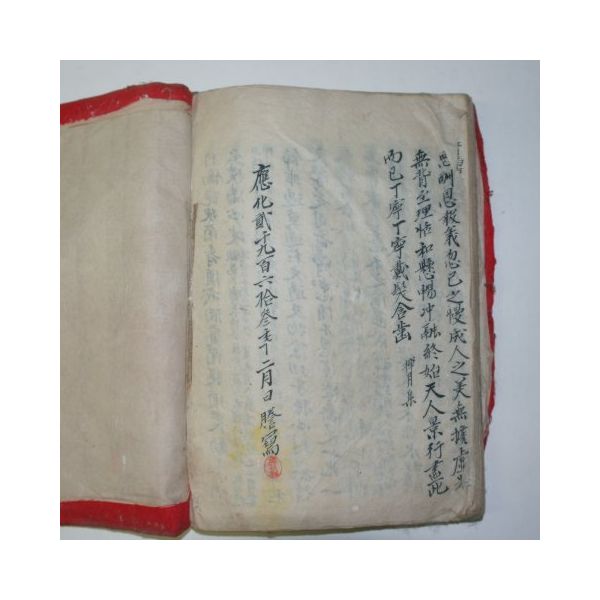 酬恩報義忽己之慢成人之美無擴虛
無背至理恬和懸暢冲融終始天人景行盡於
而已丁寧丁寧戴髮含齒
柳月集
應化貳千九百六拾叁年十二月日 謄寫